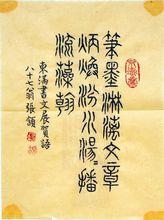 筆墨淋漓文章
炳煥汾水湯=播
流藻翰
東滿書文展賀語
八十七翁張頷